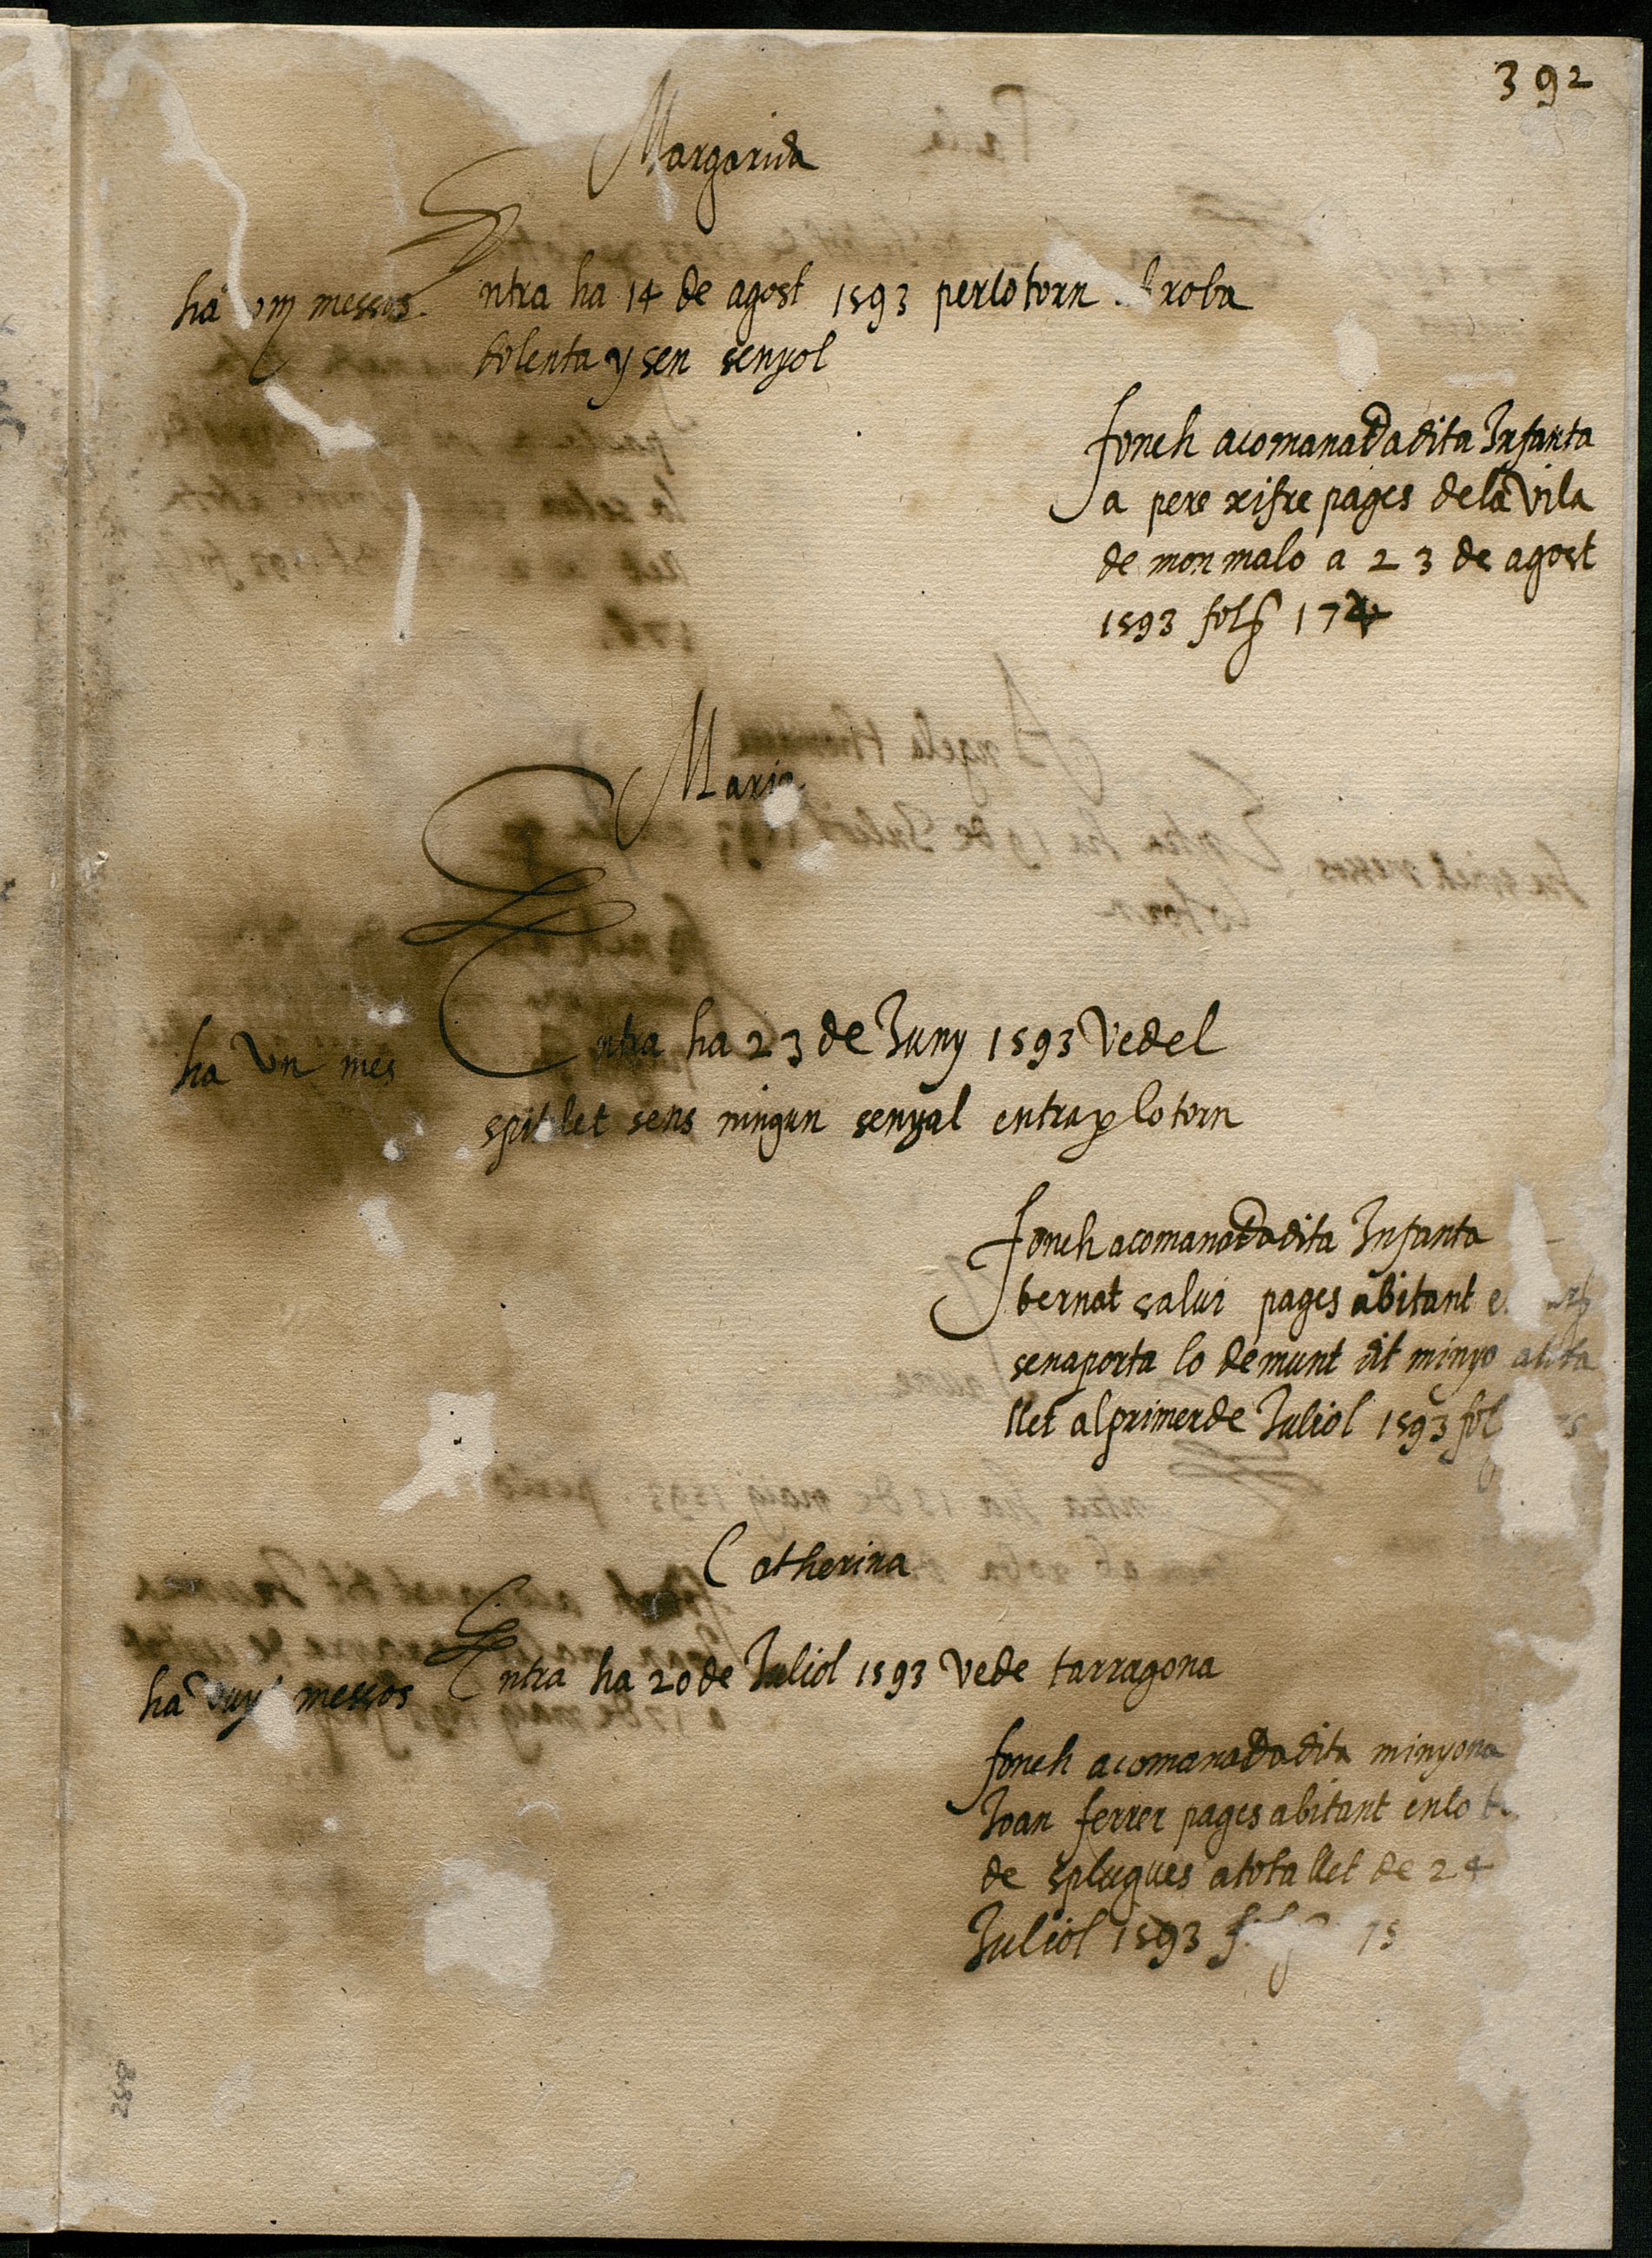 392
Margarida
ha messos. Entra ha 14 de agost 1593 perlotorn roba
tolenta y sen senyol
fonch acomanada dita Infanta
a pere xifre pages dela vila
de monmalo a 23 de agost
1593 fol 17
Maria
ha Vn mes Entra ha 23 de Juny 1593 Vedel
spitlet sens ningun senyal entra p lo torn
fonch acomanada dita Infanta
bernat salui pages abitant
senaporta lo demunt dit minyo
llet alprimerde Juliol 1593 fol
Catherina
ha messos Entra ha 20 de Juliol 1593 Vede tarragona
fonch acomanada dita minyona
Joan ferrer pages abitant enlo
de splugues atota llet de 24
Juliol 1593